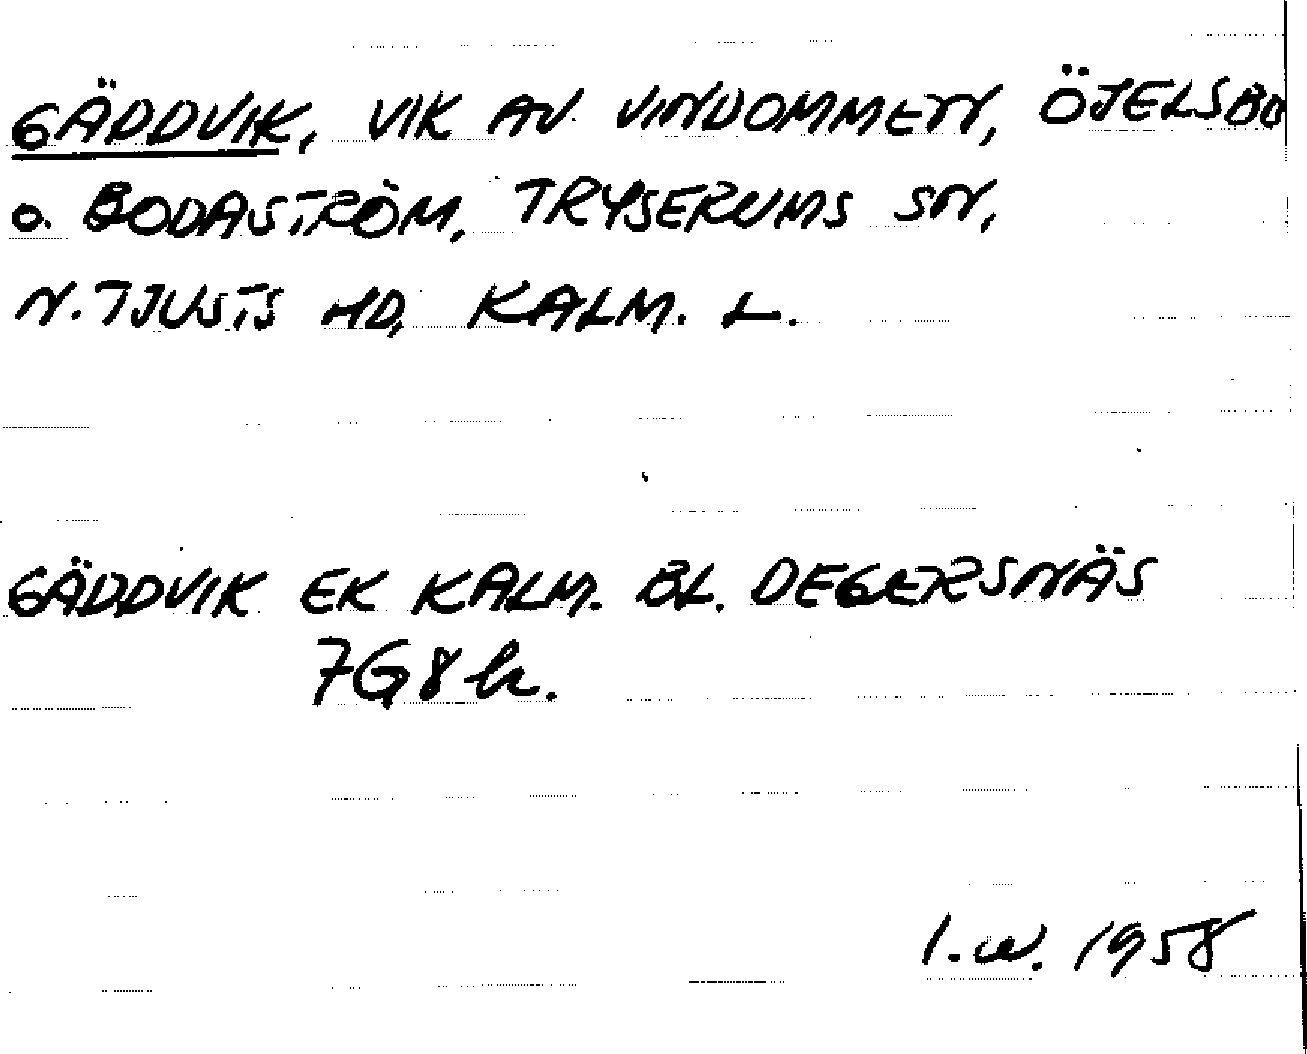 GÄDDVIK, VIK AV VINDOMMEN, ÖJELSBO
o. BODASTRÖM, TRYSERUMS SN,
N. TJUSTS HD, KALM. L.
GÄDDVIK EK KALM. BL. DEGERSNÄS
7G8h.
I.W. 1958